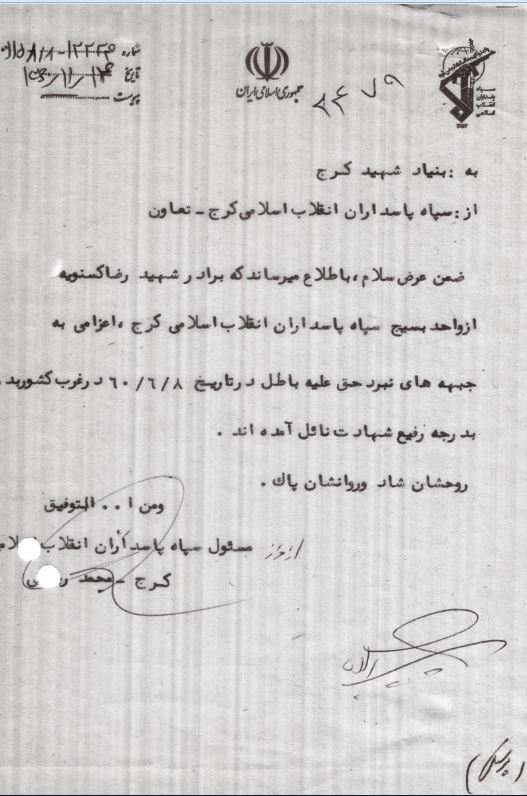 شماره
تاریخ
پیوست
جمهوری اسلامی ایران
سپاه
پاسداران
انقلاب
اسلامی
به : بنیاد شهید کرج
از : سپاه پاسداران انقلاب اسلامی کرج ـ تعاون
ضمن عرض سلام ، باطلاع میرساند که برادر شهید رضا کسنویه
از واحد بسیج سپاه پاسداران انقلاب اسلامی کرج ، اعزامی به
جبهه های نبرد حق علیه باطل در تاریخ ۶۰/۶/۸ در غرب کشور
بدرجه رفیع شهادت نائل آمده اند .
روحشان شاد و روانشان پاک .
ومن ا . . التوفیق
مسئول سپاه پاسداران انقلاب
کرج ـ محمد